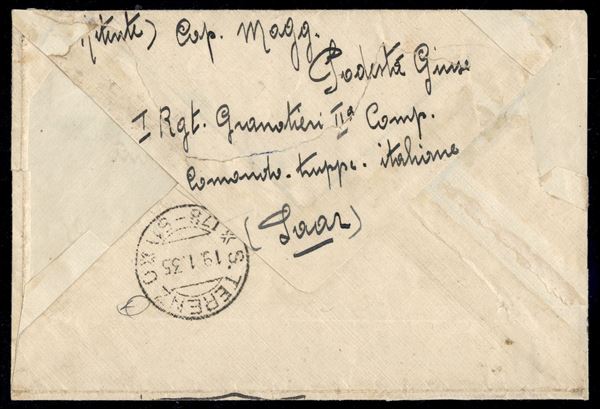 Cap. Magg.
Podestà Gius
I Rgt. Granatieri IIª Comp.
Comando truppe italiane
(Saar)
S. TERENZO
19.1.35